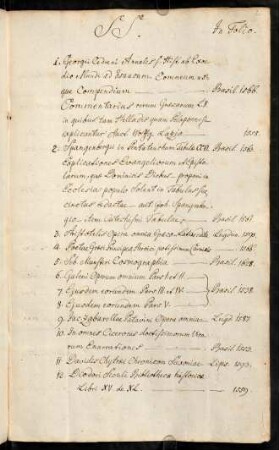 In Folio.
1. Georgii Cedreni Annales s. Hist. ab Exor-
dio Mundi ad Isaacum Comnenum us-
que Compendium Basil. 1566.
Commentarius rerum Graecarum
in quibus tam Helladis quam
explicantur Auct. Wolfg. Lazio
2. Spangenbergii in Tabulae Basil. 156
Explicationes Evangeliorum et Episto-
larum, quae Dominicis Diebus proponi in
Ecclesia populo solent in Tabulas suc-
cinctas redactae aut. Spangenber-
gio. Item Catechismi Tabulae Basil. 156
3. Aristotelis Opera omnia Graece Latine Lugduni. 1590.
4. Poetae Graeci Principes Heroici Carminis 1566.
5. Seb. Munsteri Cosmographia Basil.
6. Galeni Operum omnium Pars I et II.
7. Ejusdem eorundem Pars III et IV. Basil. 1538.
8. Ejusdem eorundem Pars V.
9. Jac. Zabarellae Patavini Opera omnia Lugd. 1587.
10. In omnes Ciceronis doctissimorum Viro-
rum Enarrationes Basil. 1553.
11. Davidis Chytraei Chronicon Saxoniae Lips. 1593.
12. Diodori Siculi Bibliothecae historicae
Libri XV de XL. 1559.